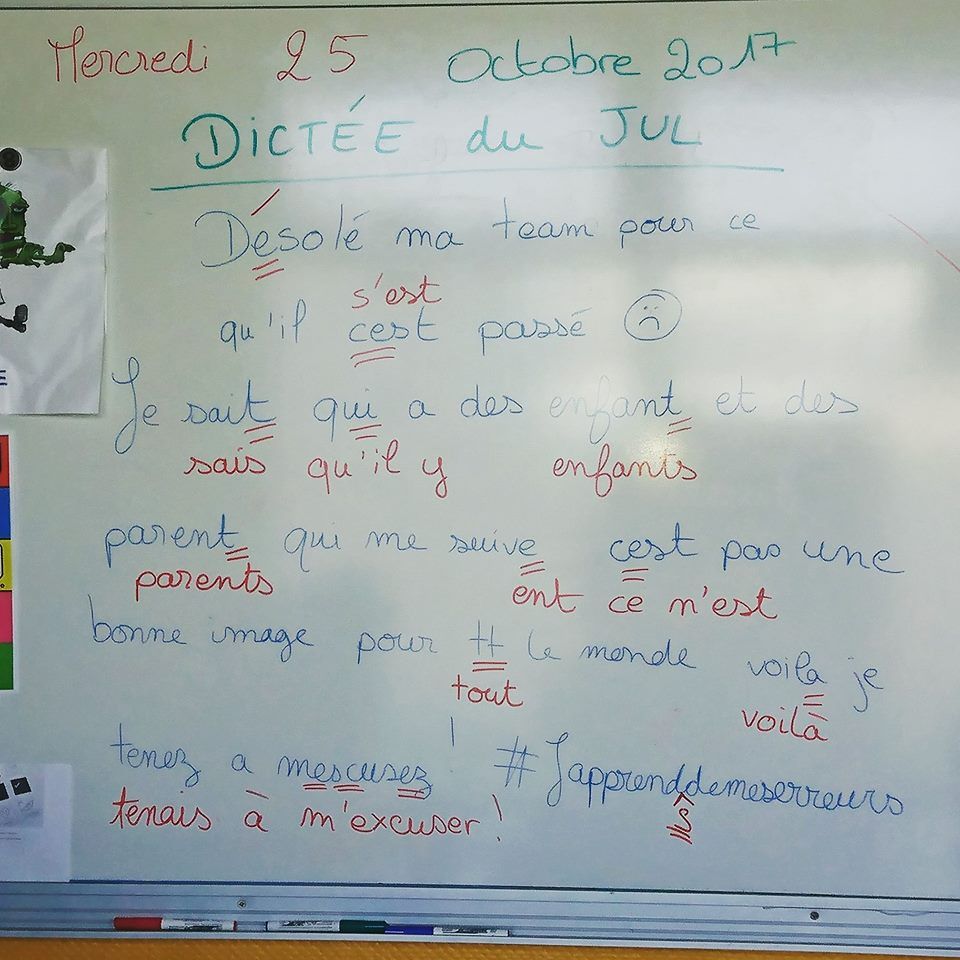 Mercredi 25 Octobre 2017
DICTÉE du JUL
Désolé ma team pour ce
s'est
qu'il cest passé
Je sait qui a des enfant et des
sais qu'il y enfants
parent qui me suive cest pas une
parents ent ce n'est
bonne image pour tt le monde voila je
tout voilà
tenez a mescusez ! #Japprenddemeserreurs
tenais à m'excuser ! s
E